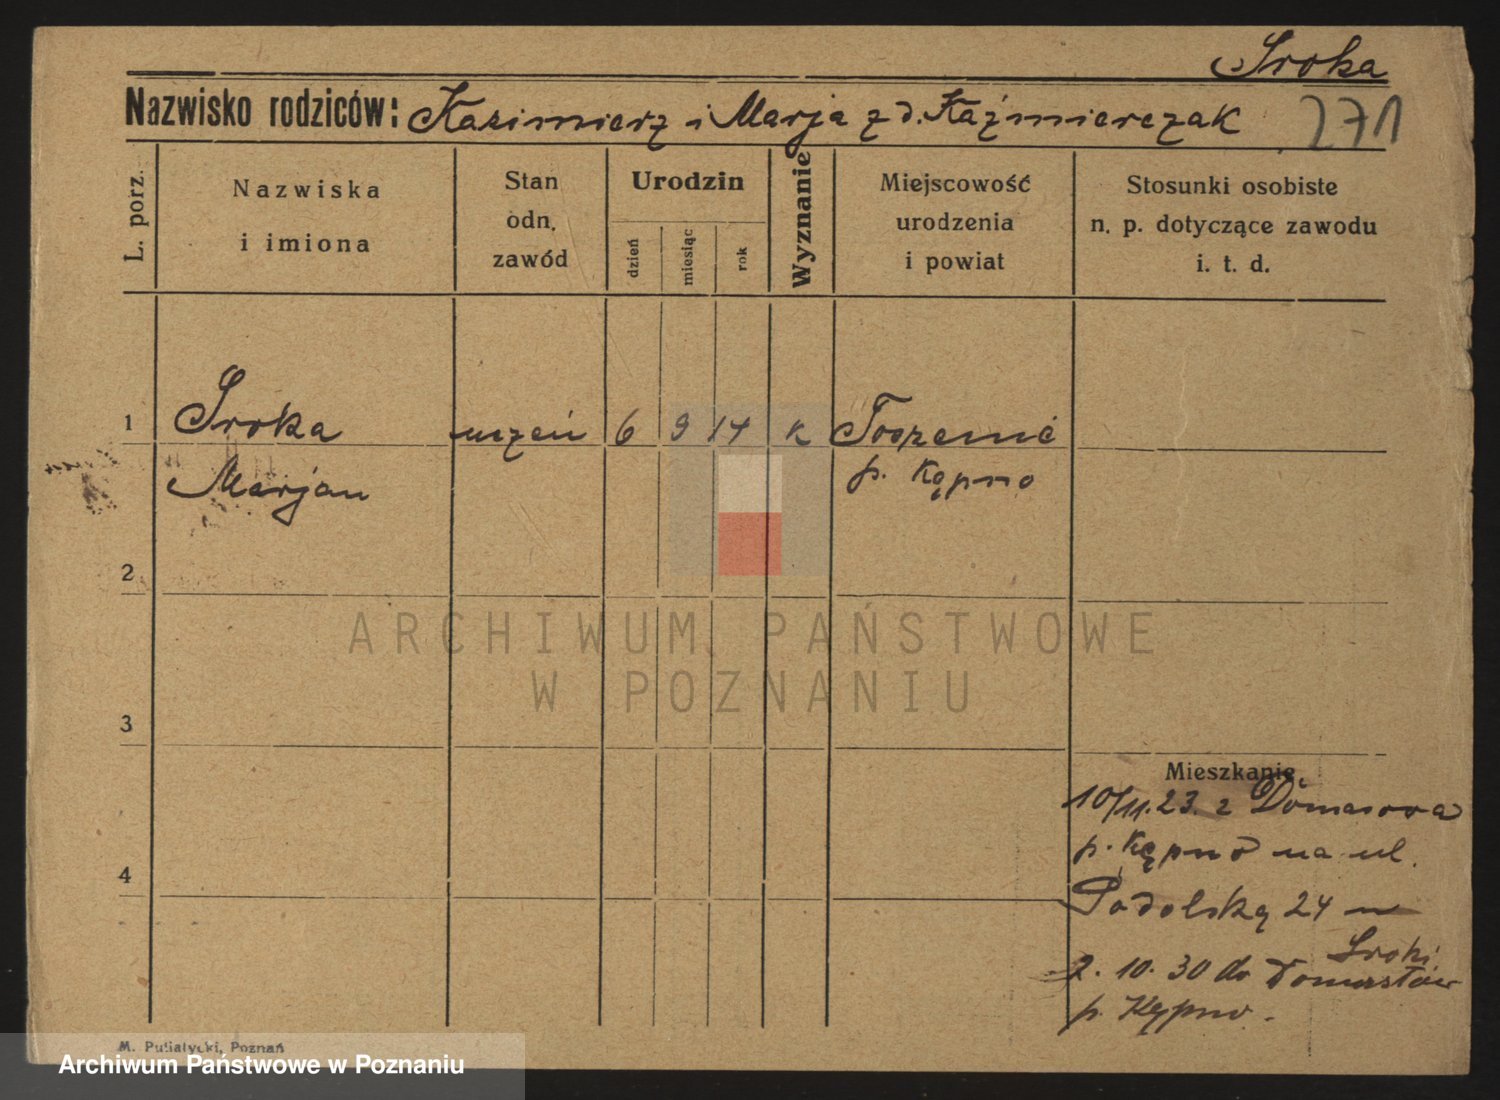 Sroka
Nazwisko rodziców: Kazimierz i Marja z d. Kaźmierczak 271
L. porz.
Nazwiska
i imiona
Stan
odn.
zawód
Urodzin
dzień
miesiąc
rok
Wyznanie
Miejscowość
urodzenia
i powiat
Stosunki osobiste
n. p. dotyczące zawodu
i. t. d.
1 Sroka uczeń 6 9 14 k
Marjan p. Kępno
2
ARCHIWUM PAŃSTWOWE
W POZNANIU
3
Mieszkanie
10/11.23. z
p. Kępno na ul.
4
Podolską 24 u
Sroki
2. 10. 30 do
p. Kępno.
M. Putiatycki, Poznań
Archiwum Państwowe w Poznaniu